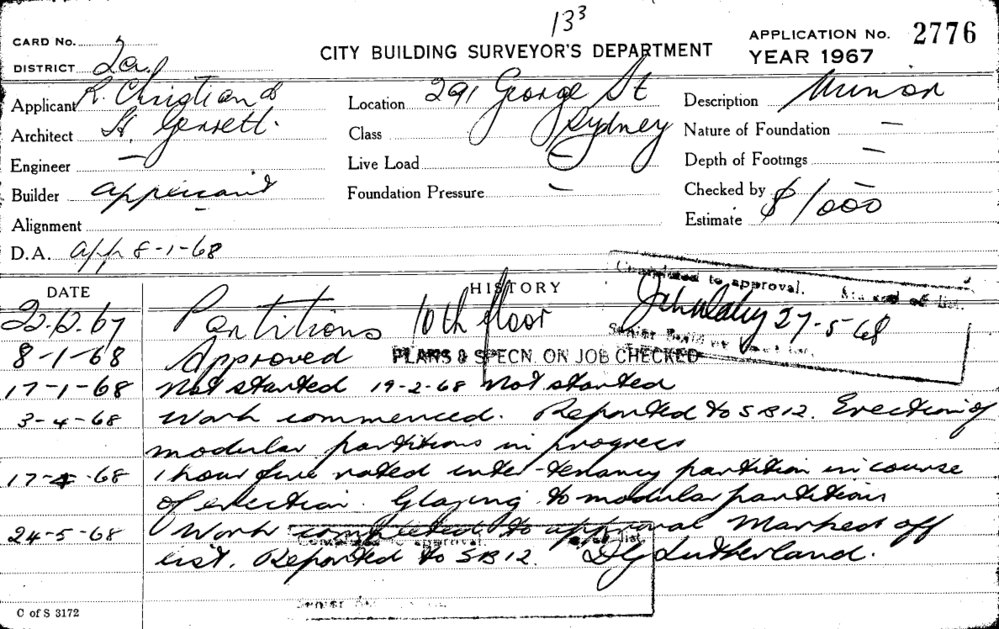 13³
CARD No. 2
CITY BUILDING SURVEYOR'S DEPARTMENT
APPLICATION No. 2776
YEAR 1967
DISTRICT 2a.
Applicant R. Christian &
Location 291 George St
Sydney
Description Minor
Architect H. Gerrett.
Class
Nature of Foundation —
Engineer —
Live Load —
Depth of Footings —
Builder applicant
Foundation Pressure —
Checked by —
Alignment —
Estimate $1000
D.A. app 8-1-68
DATE
HISTORY
Completed to approval. Marked off list.
22.12.67 Partitions 10th floor
27-5-68
Senior Building
8-1-68 Approved PLANS & SPECN. ON JOB CHECKED
17-1-68 Not started 19-2-68 Not started
3-4-68 Work commenced. Reported to SB12. Erection of
modular partitions in progress
17-4-68 1 hour fire rated inter-tenancy partition in course
of erection. Glazing to modular partitions
24-5-68 Work completed to approval Marked off
list. Reported to SB12. DJ Sutherland.
Completed to approval. list.
Senior
C of S 3172